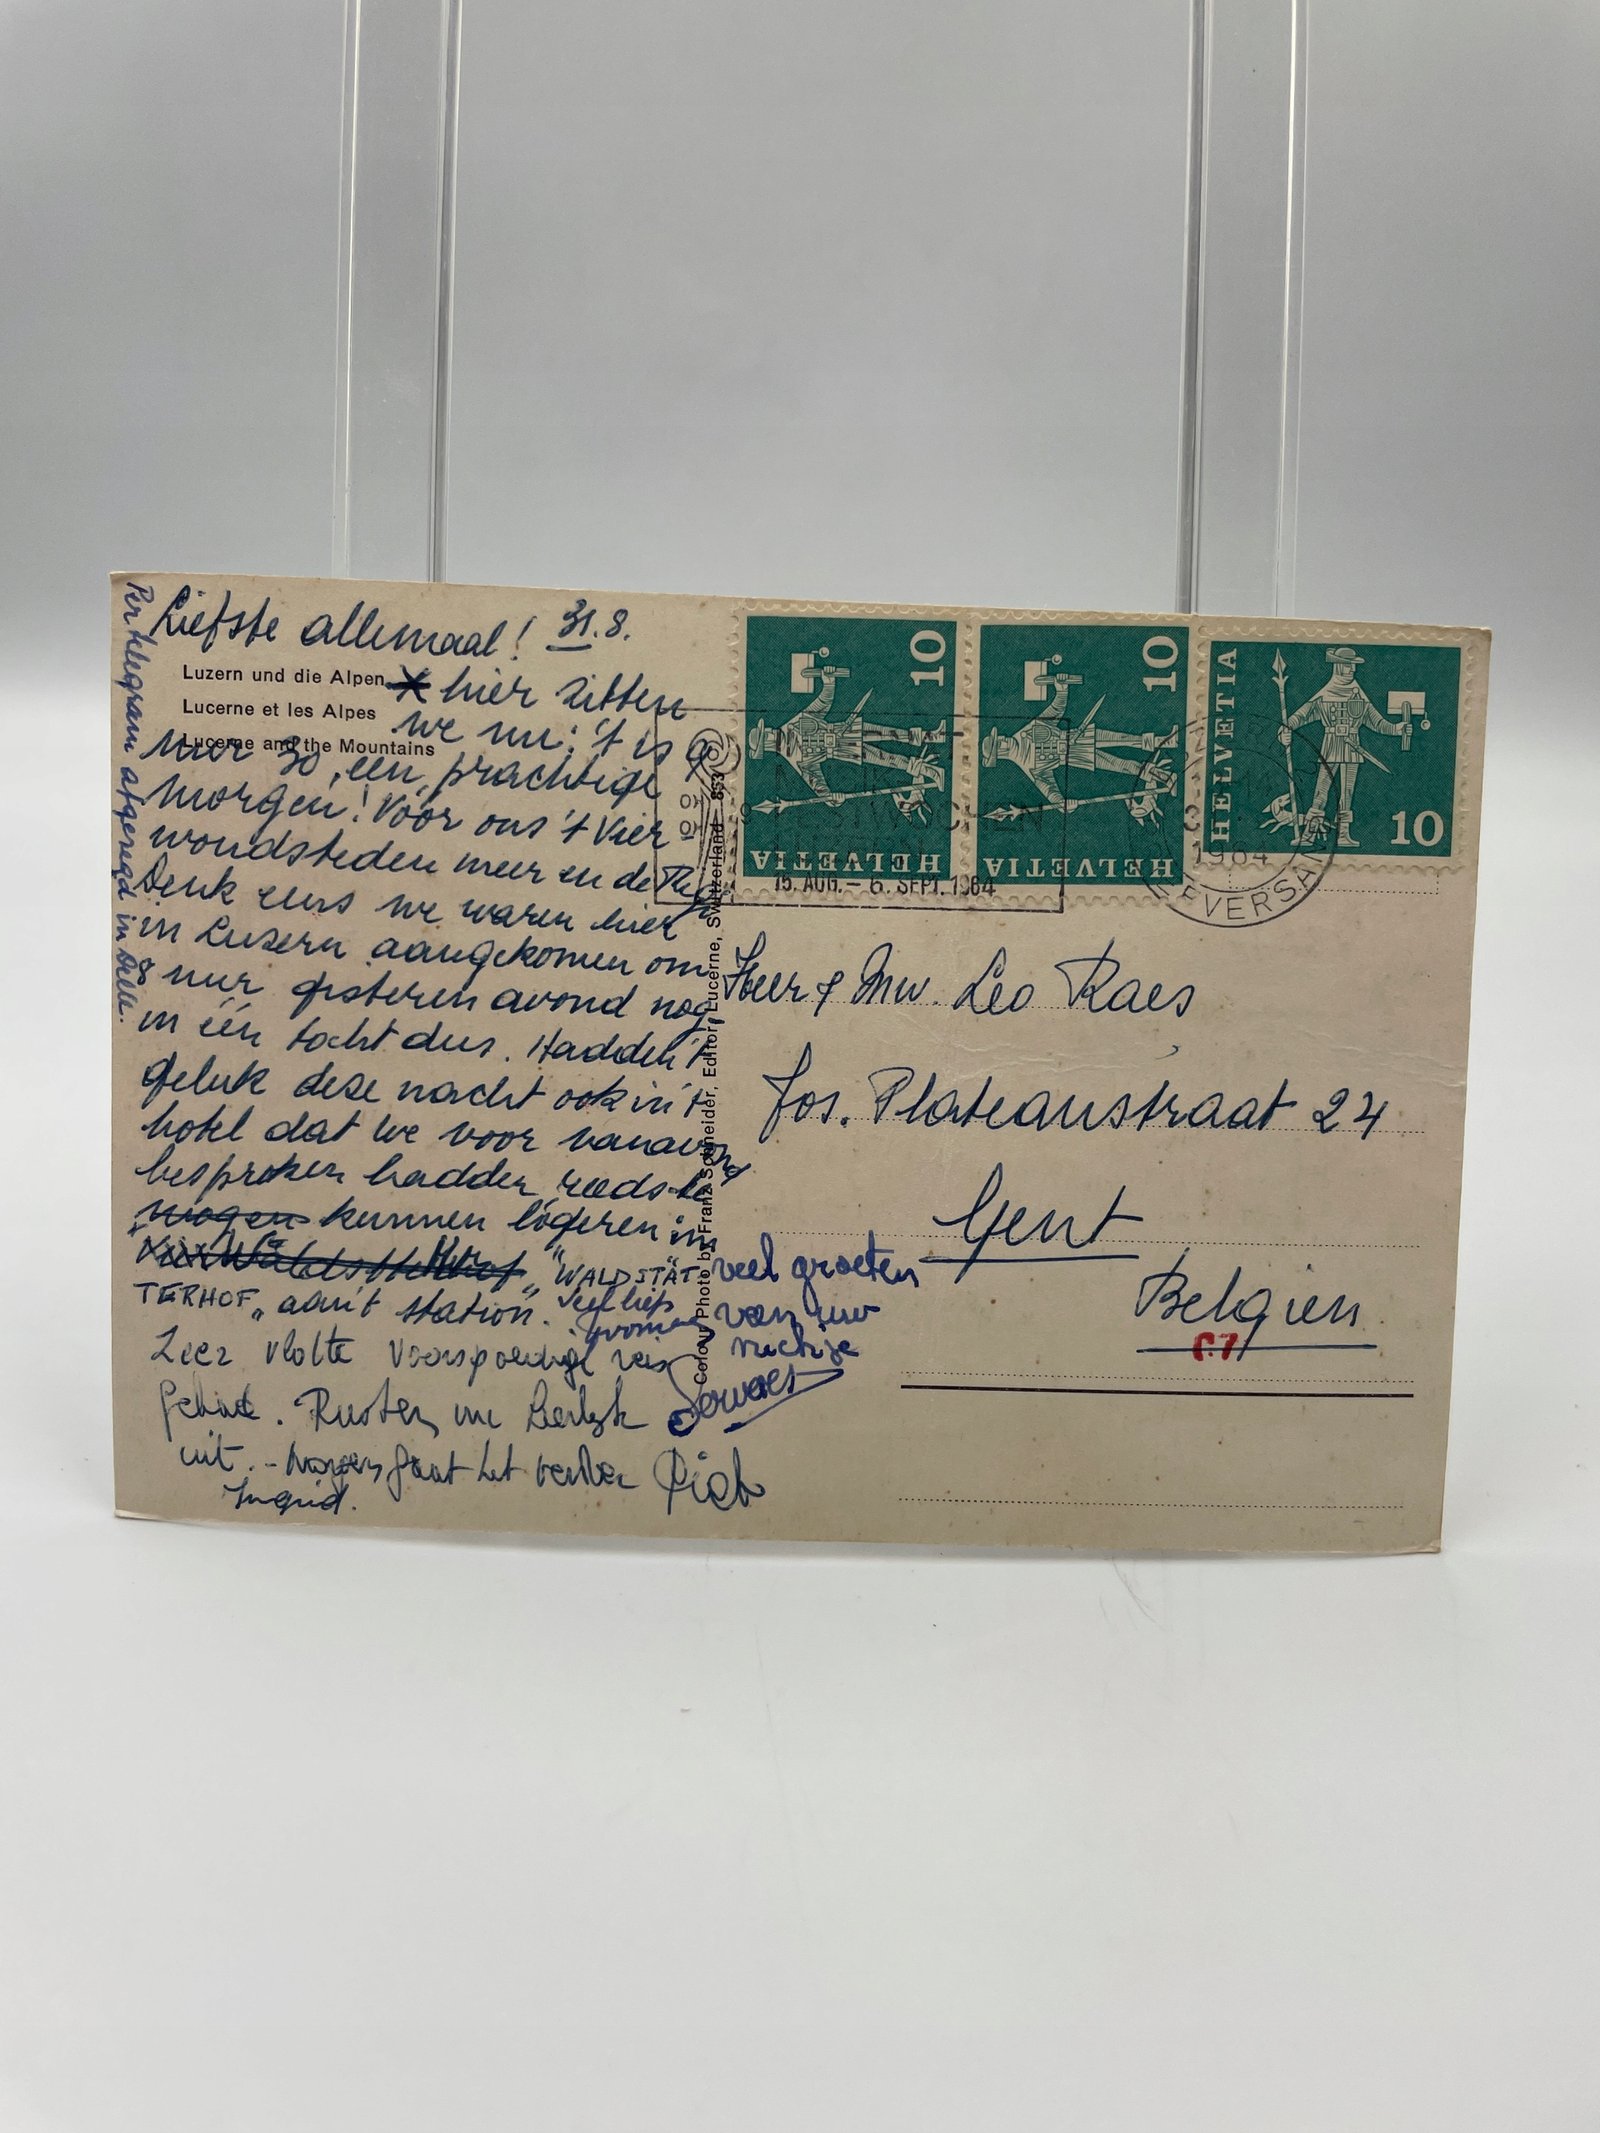 Liefste allemaal! 31.8.
Luzern und die Alpen
Lucerne et les Alpes
Lucerne and the Mountains
hier zitten
we nu: 't is 9
uur 30, een prachtige
morgen! Vóór ons 't Vier-
woudsteden meer en de
Denk eens we waren hier
in Luzern aangekomen om
8 uur gisteren avond nog,
in één tocht dus. Hadden 't
geluk deze nacht ook in 't
hotel dat we voor vanavond
besproken hadden reeds te
mogen kunnen logeren in
"WALDSTÄT-
TERHOF" aan 't station.
Veel liefs
Zeer vlotte voorspoedige reis
gehad. Rusten nu
uit. - morgen gaat het verder
Ingrid.
Per telegram afgezegd in Delle.
veel groeten
van uw
nichtje
Colour Photo by Franz Schneider, Editor, Lucerne, Switzerland 853
HELVETIA 10
HELVETIA 10
HELVETIA 10
FESTWOCHEN
15. AUG. – 6. SEPT. 1964
1964
Heer & Mw. Leo Raes
Jos. Plateaustraat 24
Gent
Belgien